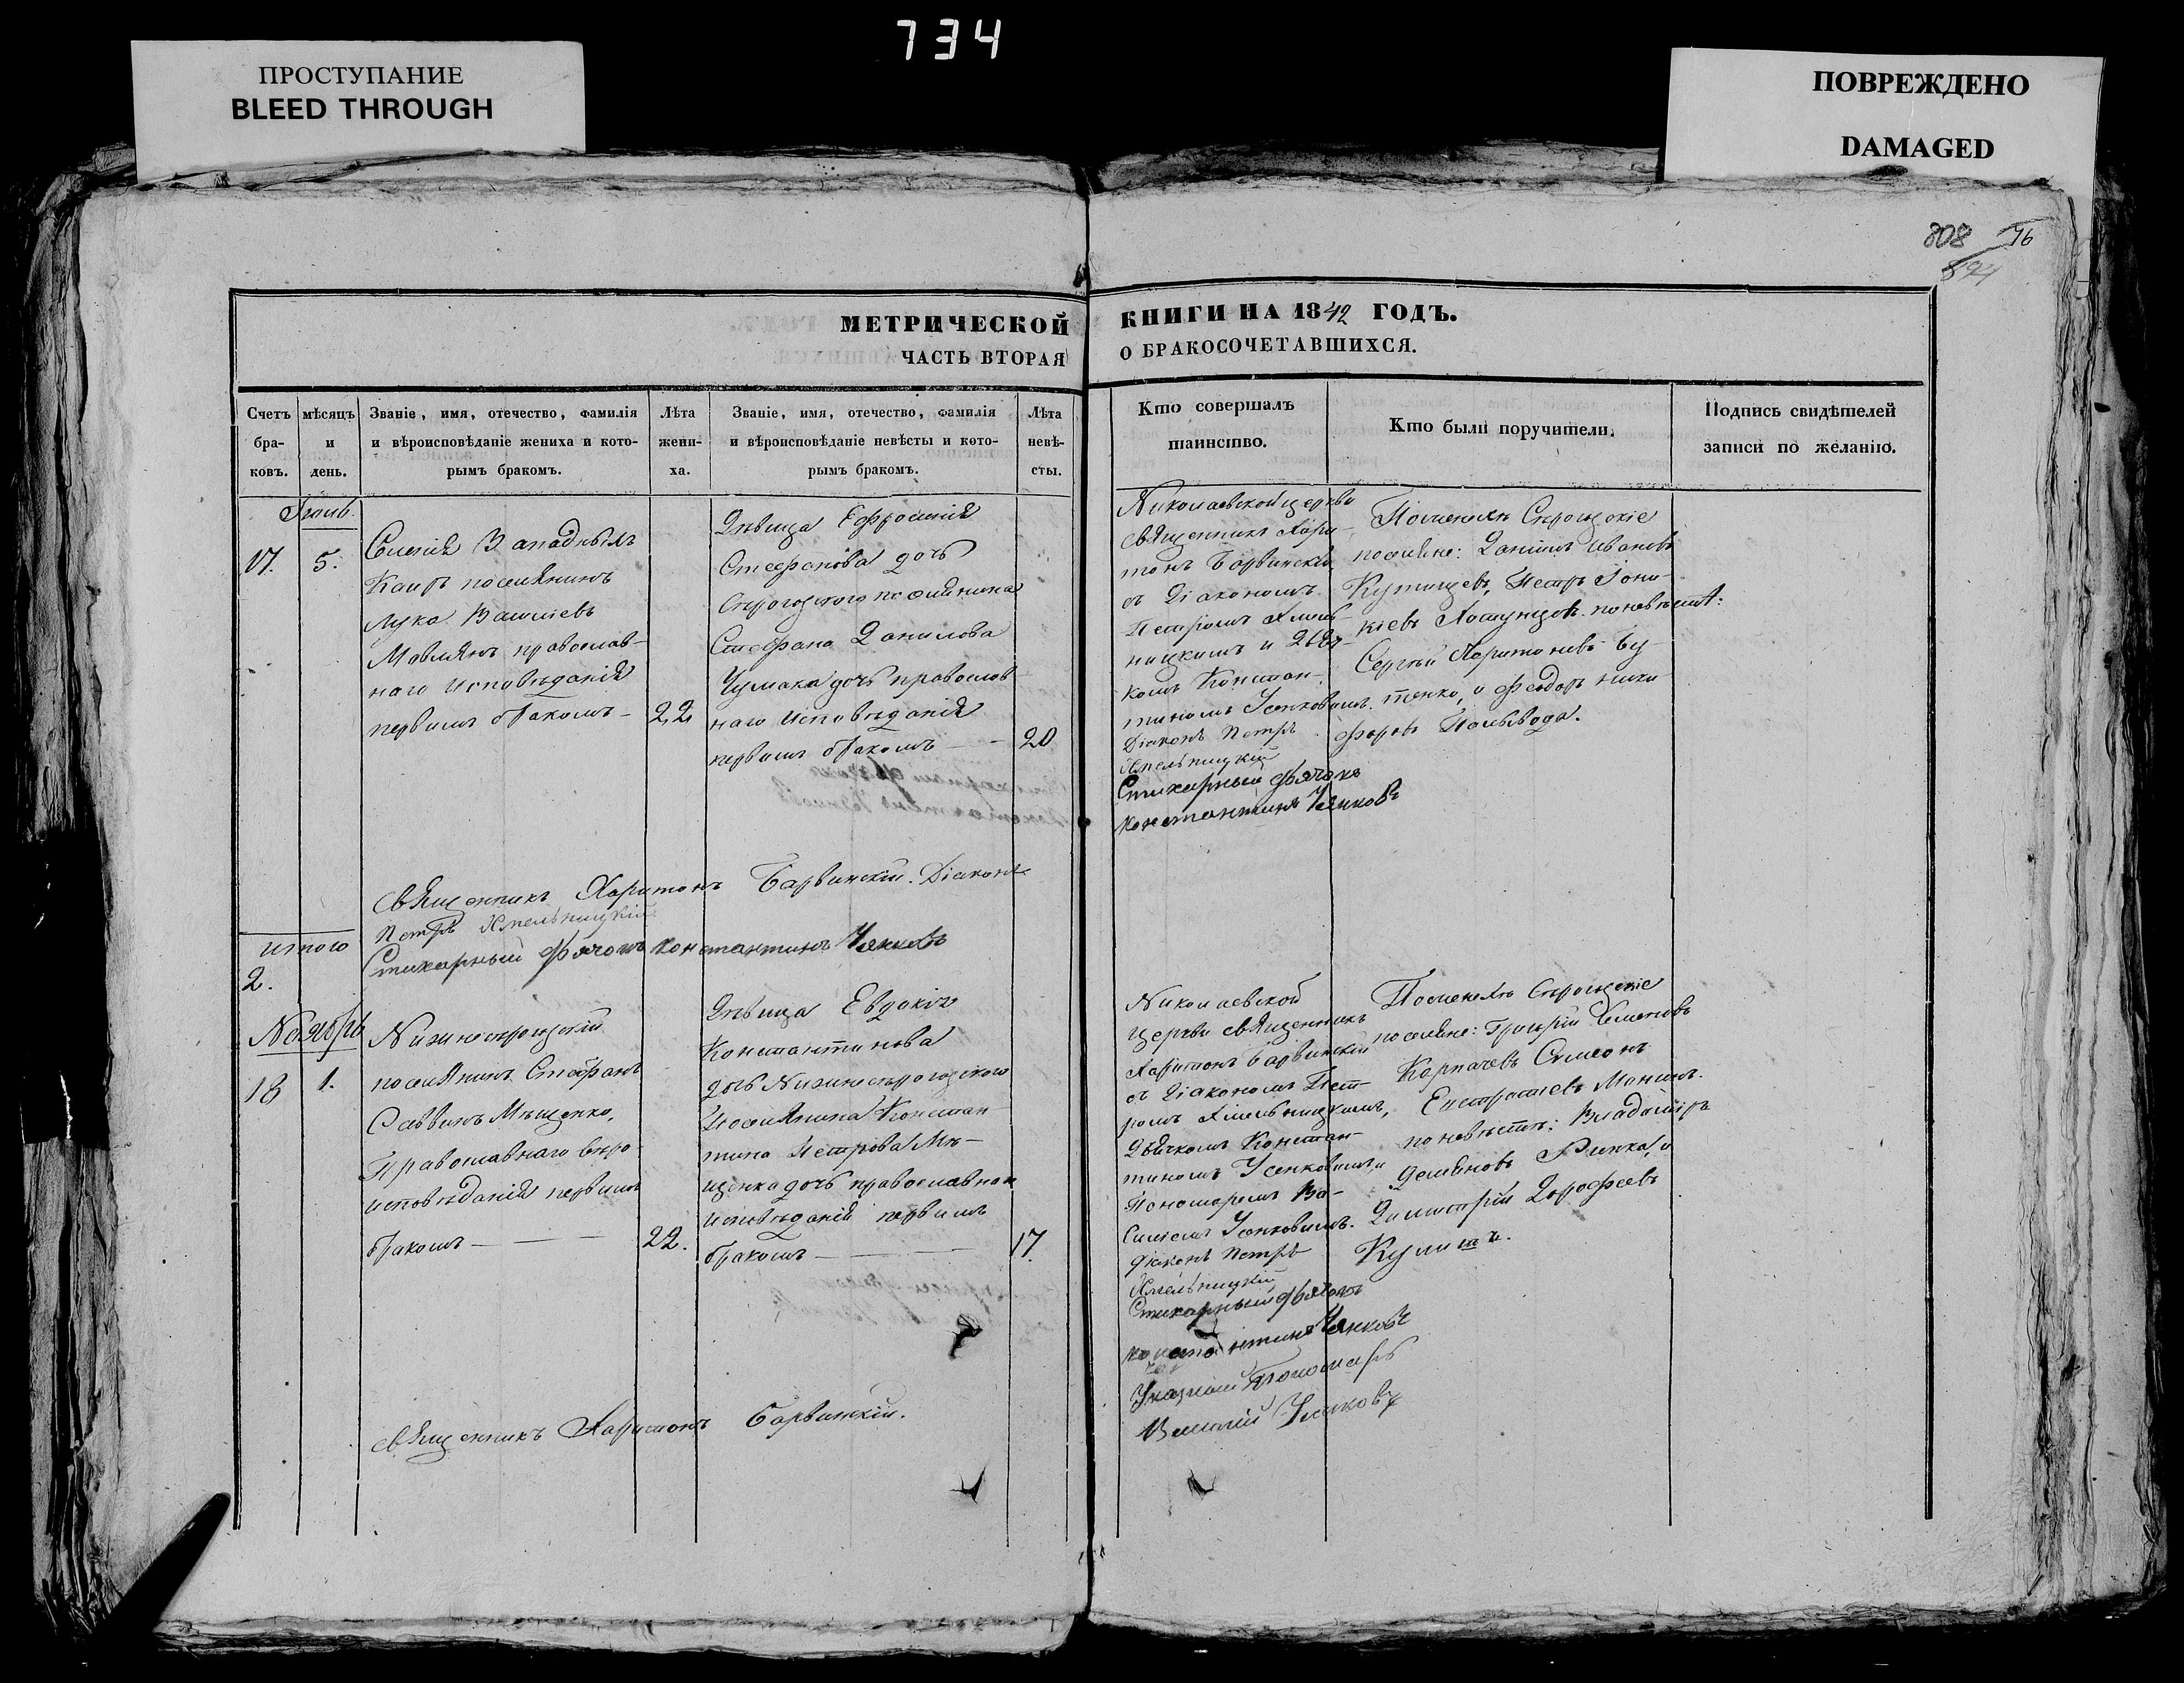 734
ПРОСТУПАНИЕ
BLEED THROUGH
ПОВРЕЖДЕНО
DAMAGED
808 76
МЕТРИЧЕСКОЙ КНИГИ НА 1842 ГОДЪ.
ЧАСТЬ ВТОРАЯ О БРАКОСОЧЕТАВШИХСЯ.
Счетъ бра- ковъ.
мѣсяцъ и день.
Званіе, имя, отечество, фамилія
и вѣроисповѣданіе жениха и кото-
рымъ бракомъ.
Лѣта жени- ха.
Званіе, имя, отечество, фамилія
и вѣроисповѣданіе невѣсты и кото-
рымъ бракомъ.
Лѣта невѣ- сты.
Кто совершалъ
таинство.
Кто были поручители.
Подпись свидѣтелей
записи по желанію.
17. 5.
Западныхъ
Каиръ поселянинъ
Лука Василіевъ
православ-
наго исповѣданія
первымъ бракомъ - 22
Дѣвица Ефросинія
Стефанова дочь
Сѣрогозскаго поселянина
Стефана Данилова
Чумака дочь православ
наго исповѣданія
первымъ бракомъ - 20
Николаевской церкви
священникъ Хари-
тонъ Барвинскій
съ діакономъ
Петромъ Хмель-
ницкимъ и дьяч-
комъ Констан-
тиномъ Усенковымъ.
Діаконъ Петръ
Хмельницкій
Стихарный дьячокъ
Константинъ Усенковъ
По женихѣ Сѣрогозскіе
поселяне: Даніилъ Ивановъ
Петръ Іони-
кіевъ по невѣстѣ:
Сергѣй Харитоновъ Бу-
тенко, и Феодоръ Ники-
форовъ
Священникъ Харитонъ Барвинскій. Діаконъ
Петръ Хмельницкій
Стихарный дьячокъ Константинъ Усенковъ
Итого
2.
Ноябрь
18 1.
Нижнесѣрогозскій
поселянинъ Стефанъ
Саввинъ Мѣщенко,
Православнаго вѣро-
исповѣданія первымъ
бракомъ - 22.
Дѣвица Евдокія
Константинова
дочь Нижнесѣрогозскаго
поселянина Констан-
тина Петрова Мѣ-
щенка дочь православнаго
исповѣданія первымъ
бракомъ - 17.
Николаевской
церкви священникъ
Харитонъ Барвинскій
съ діакономъ Пет-
ромъ Хмельницкимъ,
дьячкомъ Констан-
тиномъ Усенковымъ и
Пономаремъ Ва-
силіемъ Усенковымъ.
діаконъ Петръ
Хмельницкій
Стихарный дьячокъ
Константинъ Усенковъ
Указный Пономарь
Василій Усенковъ
По женихѣ Сѣрогозскіе
поселяне: Григорій Семеновъ
Карпачевъ Симеонъ
Евстратіевъ
по невѣстѣ: Владиміръ
Демяновъ и
Димитрій Дорофеевъ
Кулишъ.
Священникъ Харитонъ Барвинскій.